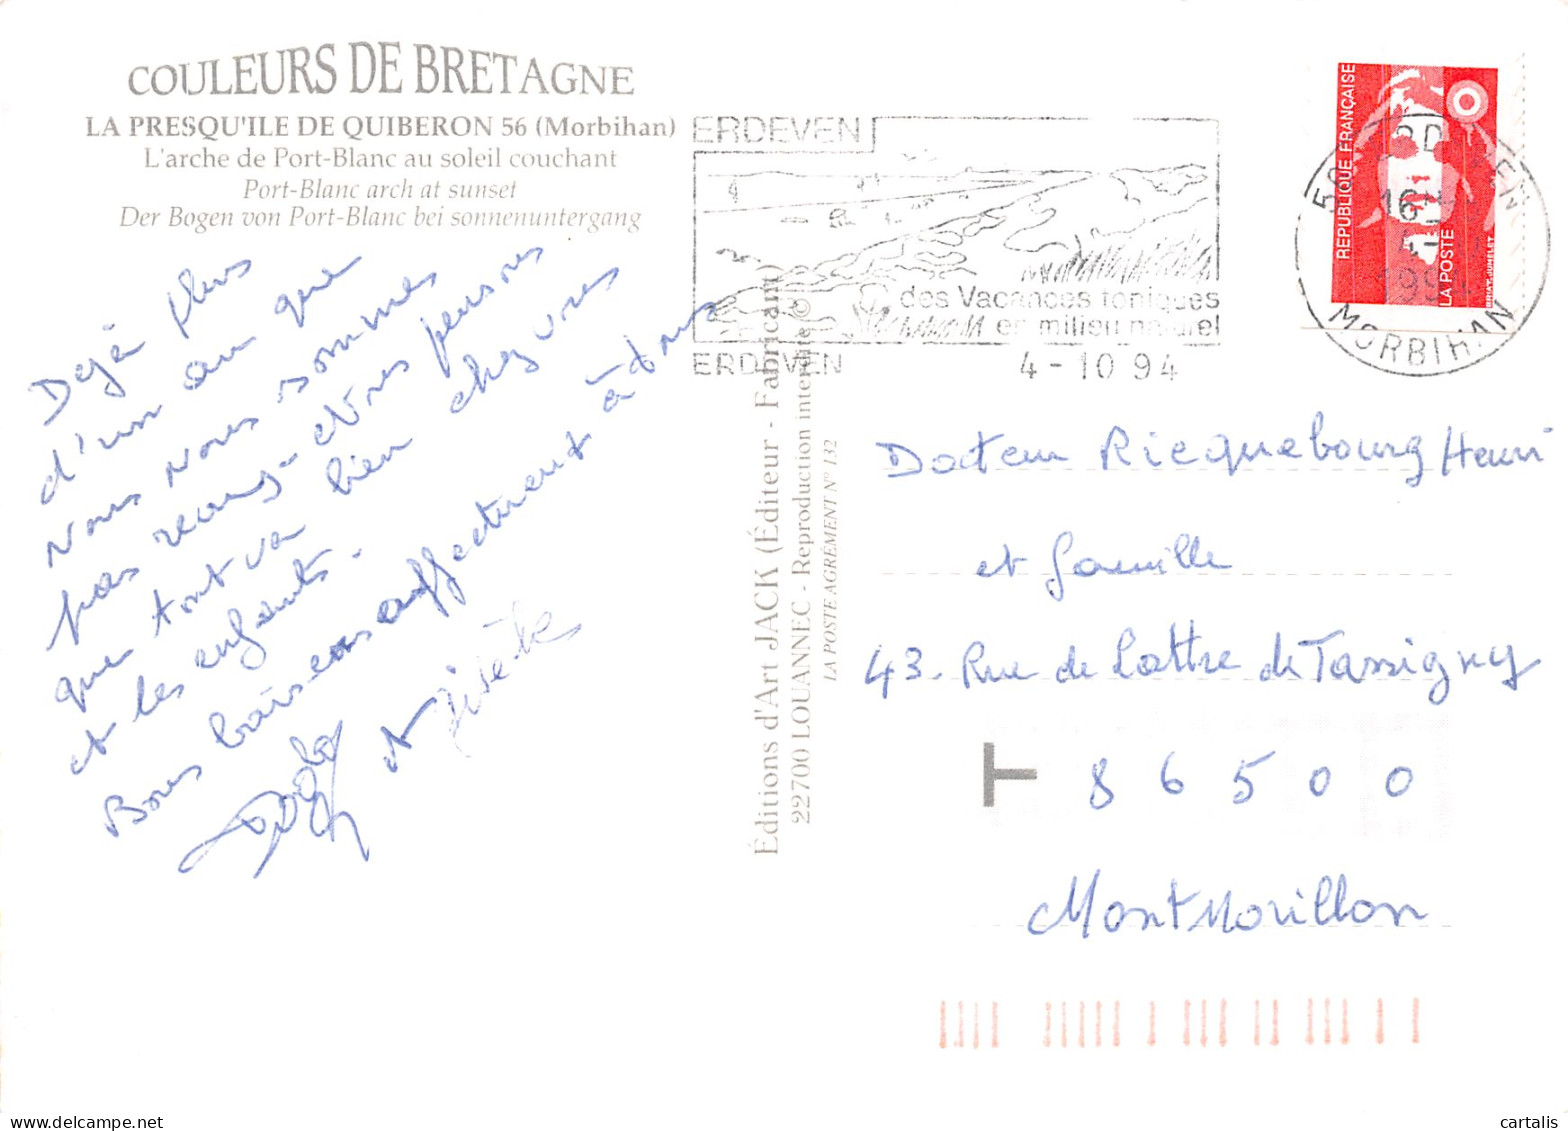 COULEURS DE BRETAGNE
LA PRESQU'ILE DE QUIBERON 56 (Morbihan)
L'arche de Port-Blanc au soleil couchant
Port-Blanc arch at sunset
Der Bogen von Port-Blanc bei sonnenuntergang
Dejà plus
d'un an que
Nous nous sommes
pas revus - Nous pensons
que tout va bien chez vous
et les enfants.
Bons baisers affectueux à tous
et
ERDEVEN
des Vacances toniques
en milieu naturel
ERDEVEN 4-10 94
REPUBLIQUE FRANÇAISE
LA POSTE
MORBIHAN
Éditions d'Art JACK (Éditeur - Fabricant)
22700 LOUANNEC - Reproduction interdite ©
LA POSTE AGRÉMENT N° 132
Docteur Ricquebourg Henri
et famille
43. Rue de Lattre de Tassigny
T 86500
Montmorillon
cartalis